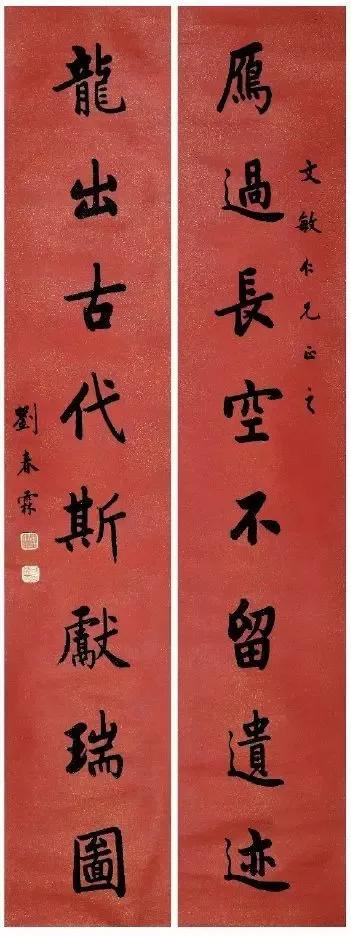 文敏仁兄正之
雁過長空不留遺迹
龍出古代斯獻瑞圖
劉春霖